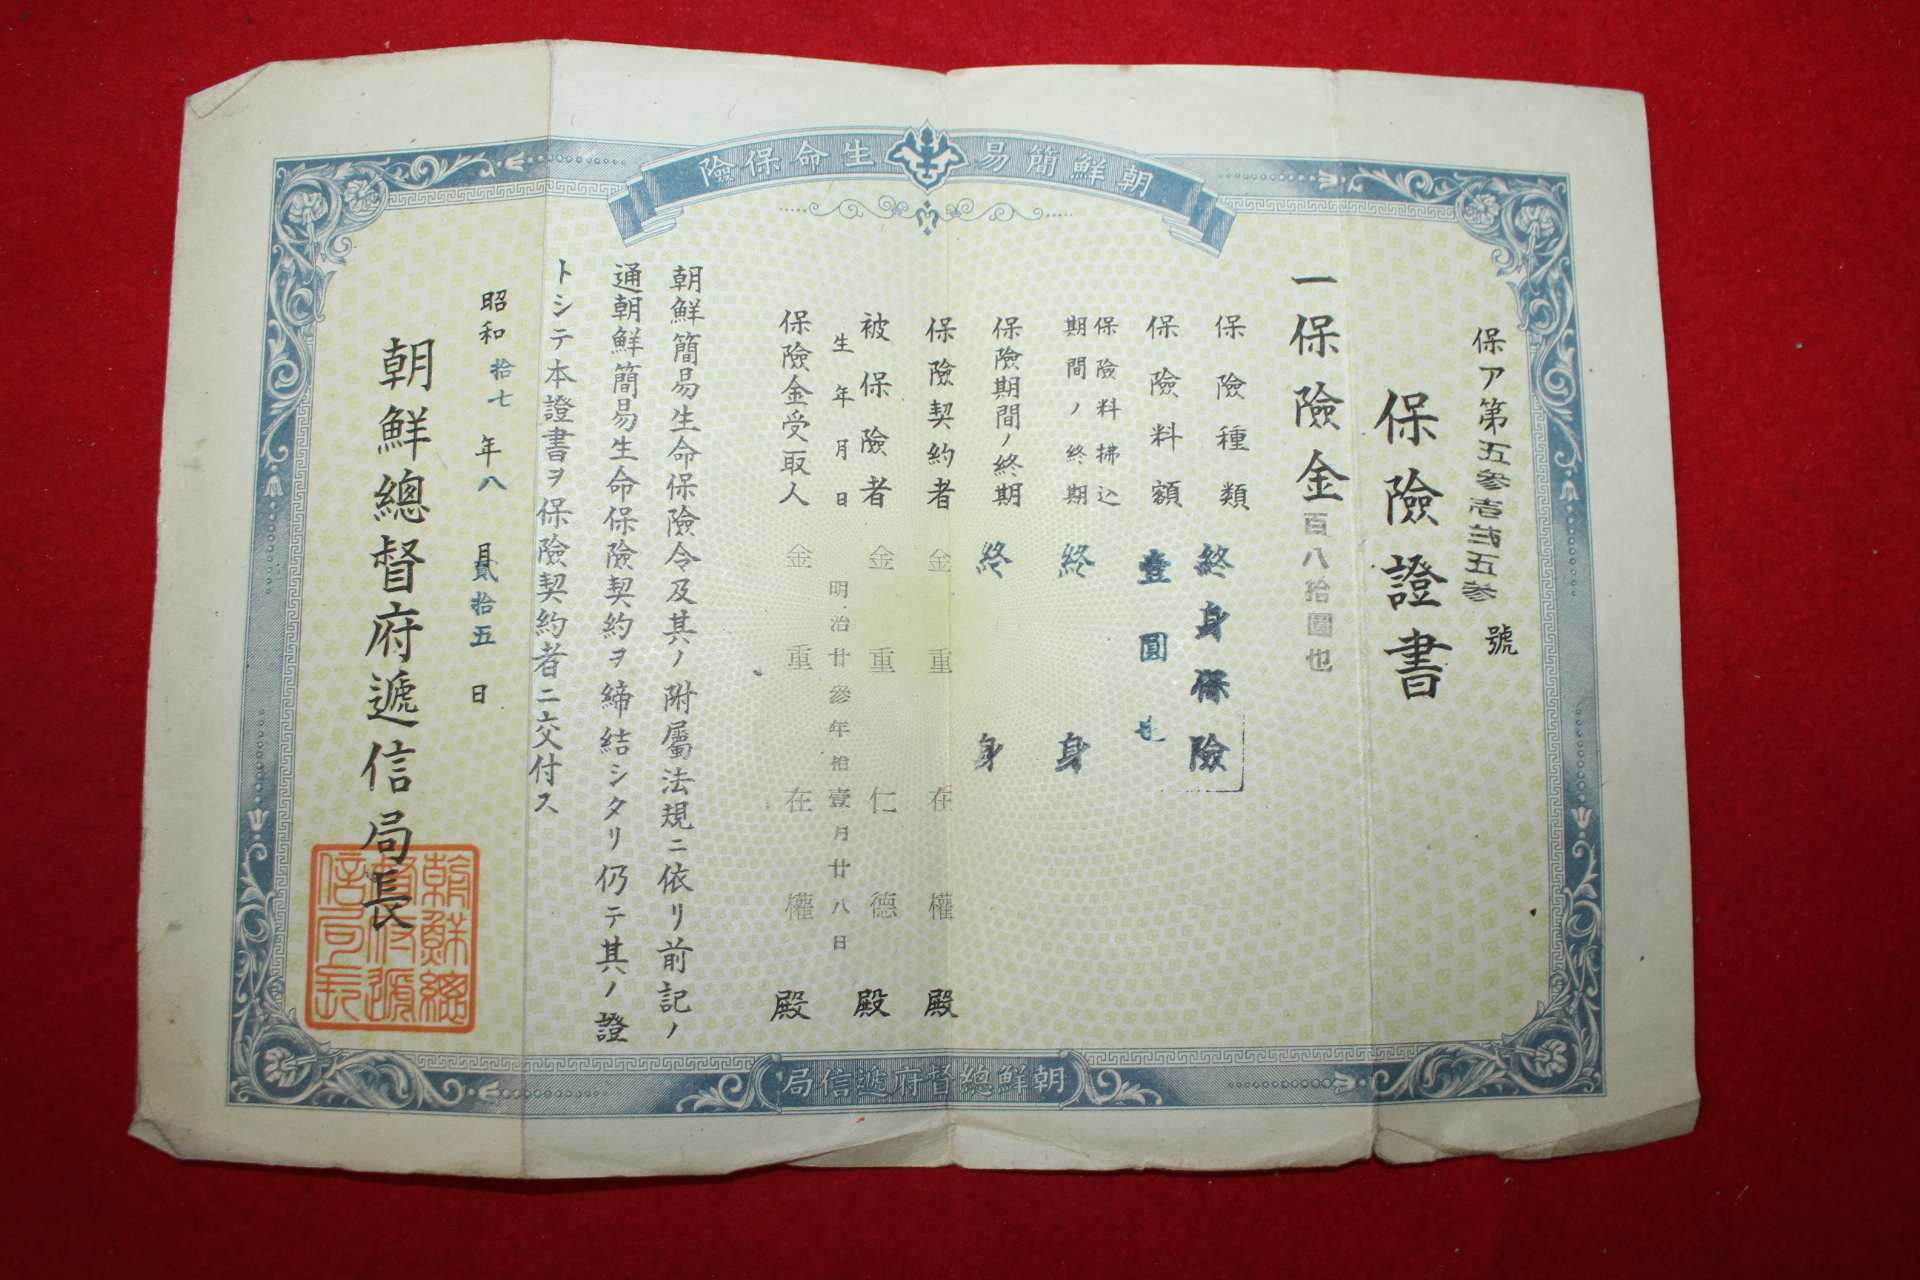 朝鮮簡易生命保險
保ア第五参壱弐五参號
保險證書
一保險金百八拾圓也
保險種類 終身保險
保險料額 壹圓也
保險料拂込
期間ノ終期 終身
保險期間ノ終期 終身
保險契約者 金重在權殿
被保險者 金重仁德殿
生年月日 明治廿參年拾壹月廿八日
保險金受取人 金重在權殿
朝鮮簡易生命保險令及其ノ附屬法規ニ依リ前記ノ
通朝鮮簡易生命保險契約ヲ締結シタリ仍テ其ノ證
トシテ本證書ヲ保險契約者ニ交付ス
昭和拾七年八月貳拾五日
朝鮮總督府遞信局長
朝鮮總督府遞信局長
朝鮮總督府遞信局